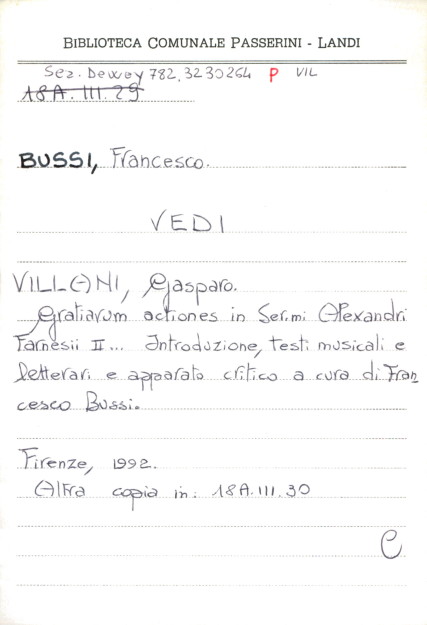 BIBLIOTECA COMUNALE PASSERINI - LANDI
Sez. Dewey 782.3230264 P VIL
18A.III.29
BUSSI, Francesco.
VEDI
VILLANI, Gasparo.
Gratiarum actiones in Ser.mi Alexandri
Farnesii II... Introduzione, testi musicali e
letterari e apparato critico a cura di Fran
cesco Bussi.
Firenze, 1992.
Altra copia in: 18A.III.30
C